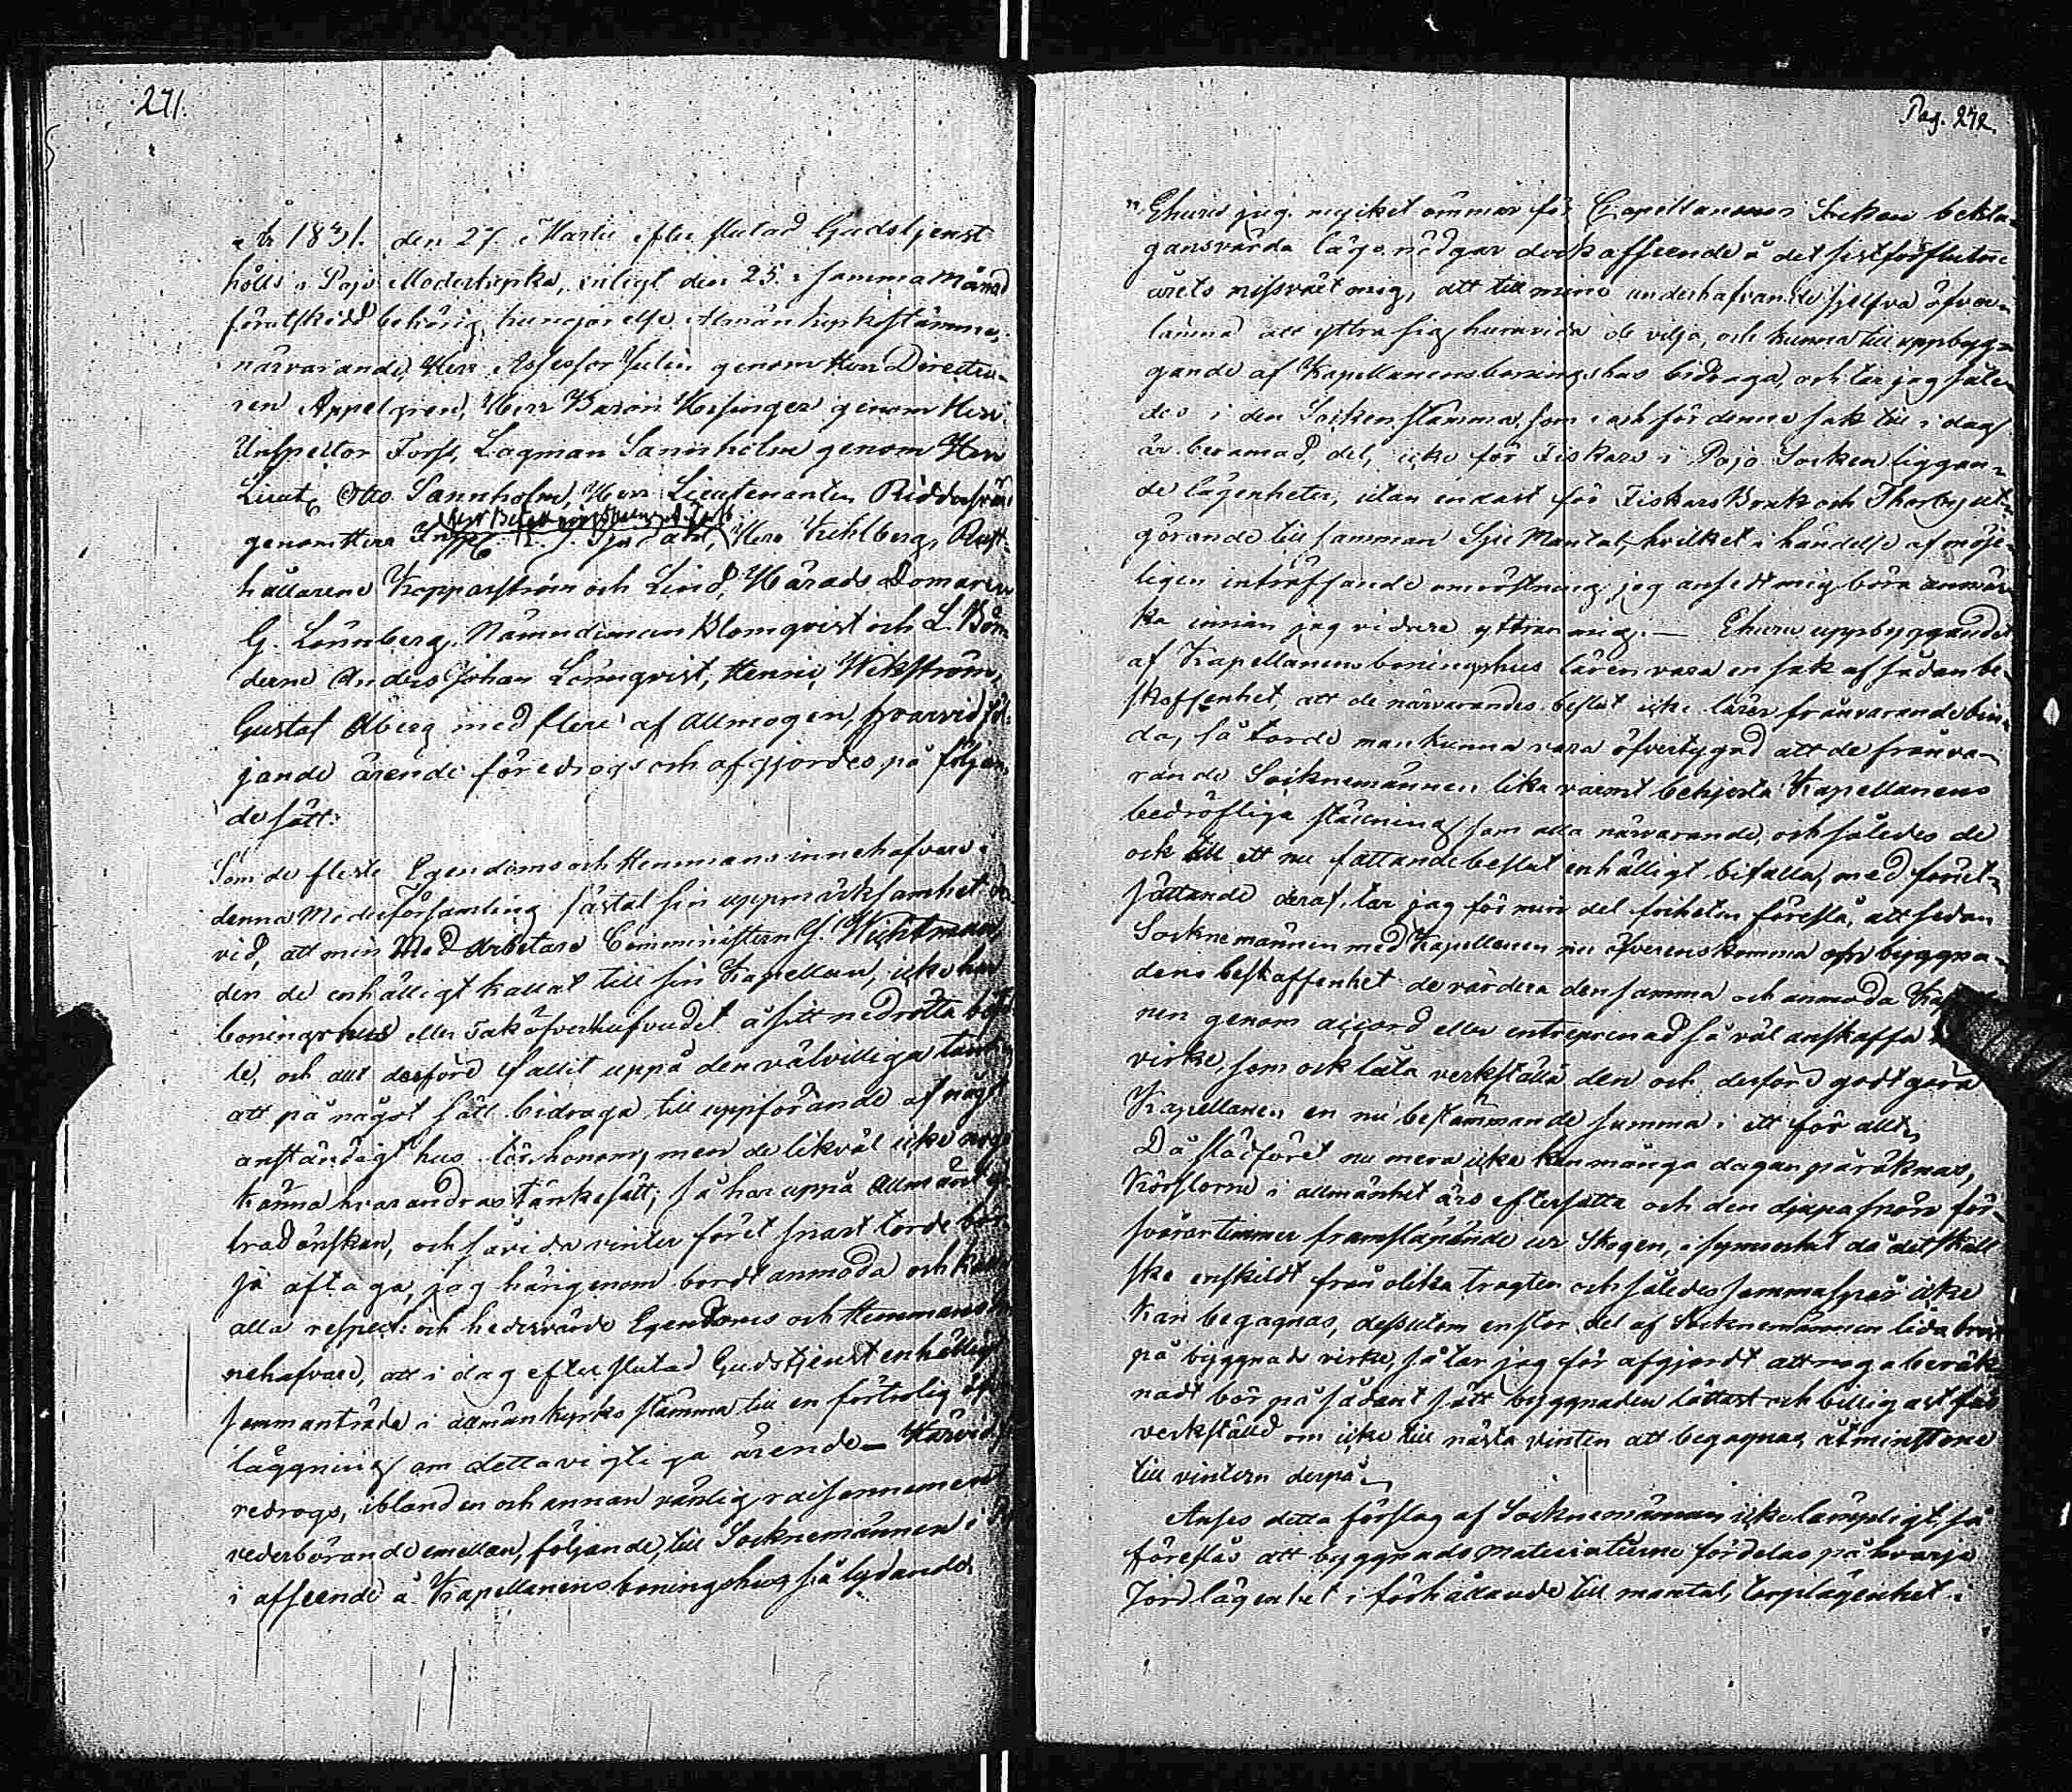 271.
År 1831. den 27. Martii efter slutad Gudstjenst
hölls i Pojo Moderkyrka, enligt den 25. i samma Månad
förutskedd behörig kungörelse Allmän kyrkostämma,
närvarande, Herr Assessor Julin genom Herr Directeu-
ren Appelgren, Herr Baron Hisinger genom Herr
Inspector Forss, Lagman Sannholm genom Herr
Lieut. Otto Sannholm, Herr Lieutenanten Riddersvärd
genom Herr Insp. Herr Kihlberg, Rust-
hållarene Kopparström och Lind, Härads Domaren
G. Lönnberg, Nämndeman Blomqvist och L. Bön-
derne Anders Johan Lönnqvist, Henric Wikström,
Gustaf Åberg med flere af Allmogen, hvarvid föl-
jande ärende föredrogs och afgjordes på följan-
de sätt:
Som de fleste Egendoms och Hemmans innehafvare i
denna Moderförsamling fästat sin uppmärksamhet der-
vid, att min Med Arbetare Comministern G. Wichtman
den de enhälligt kallat till sin Kapellan, icke har
boningshus eller Tak öfver hufvudet å sitt nedrötta bostäl-
le, och allt derföre fallit uppå den välvilliga tanken
att på något sätt bidraga till uppförande af något
anständigt hus för honom, men de likväl icke noga
känna hvarandras tänkesätt; så har uppå Allmänt ytt-
rad önskan, och såvida vinterföret snart torde bör-
ja aftaga, jag härigenom bordt anmoda och kalla
alla respect: och hedervärde Egendoms och Hemmans in-
nehafvare, att i dag efter slutad Gudstjenst enhälligt
sammanträda i allmän kyrkostämma till en förtrolig öfver-
läggning om detta vigtiga ärende — Härvid fö-
redrogs, ibland en och annan vänlig raisonnement
vederbörande emellan, följande, till Socknemännen i
i afseende å Kapellanens boningshus så lydande.
Pag. 272.
"Ehuru jag mycket ömmar för Capellanens Dr kan bekla-
gansvärda läge, nödgar dock afseende å det sistförflutne
årets missväxt mig, att till mine underhafvande sjelfva öfver-
lämna att yttra sig huruvida de vilja, och kunna till uppbyg-
gande af Kapellanens boningshus bidraga, och lär jag såle-
des i den Sockenstämma, som och för denna sak till i dag
är beramad, del, icke för Fiskars i Pojo Socken liggan-
de lägenheter, utan endast för Fiskars Bruk och Thorby ut-
görande tillsamman Sju Mantal, hvilket i händelse af möje-
ligen inträffande omröstning jag ansedt mig böra anmär-
ka innan jag vidare yttrar mig. — Ehuru uppbyggandet
af Kapellanens boningshus läron vara en sak af sådan be-
skaffenhet, att de närvarandes beslut icke lärer frånvarande bin-
da, så torde man kunna vara öfvertygad att de frånva-
rande Socknemännen lika varmt behjerta Kapellanens
bedröfliga ställning som alla närvarande, och således de
ock till ett nu fattande beslut enhälligt bifalla, med förut-
sättande deraf, tar jag för min del friheten föreslå, att sedan
Socknemännen med Kapellanen nu öfverenskomma om byggna-
dens beskaffenhet de värdera densamma och anmoda Kapel-
nen genom accord eller entreprenad så väl anskaffa
virke, som ock låta verkställa den och derföre godtgöra
Kapellanen en nu bestämmande summa i ett för allt.
Då slädföret nu mera icke kan många dagar påräknas,
Körslorne i allmänhet äro eftersatta och den djupa snön för-
svårar timmer framsläpande ur Skogen, isynnerhet då det skall
ske enskildt från olika tragter och således samma spår icke
kan begagnas, dessutom en stor del af Socknemännen lida brist
på byggnads virke, så tar jag för afgjordt att noga beräk-
nadt bör på sådant sätt byggnaden lättast och billigast fås
verkställd om icke till nästa vinter att begagnas, åtminstone
till vintern derpå.
Anses detta förslag af Socknemännen icke lämpligt, så
föreslås att byggnads materialierne fördelas på hvarje
Jordlägenhet i förhållande till mantal, torplägenhet i